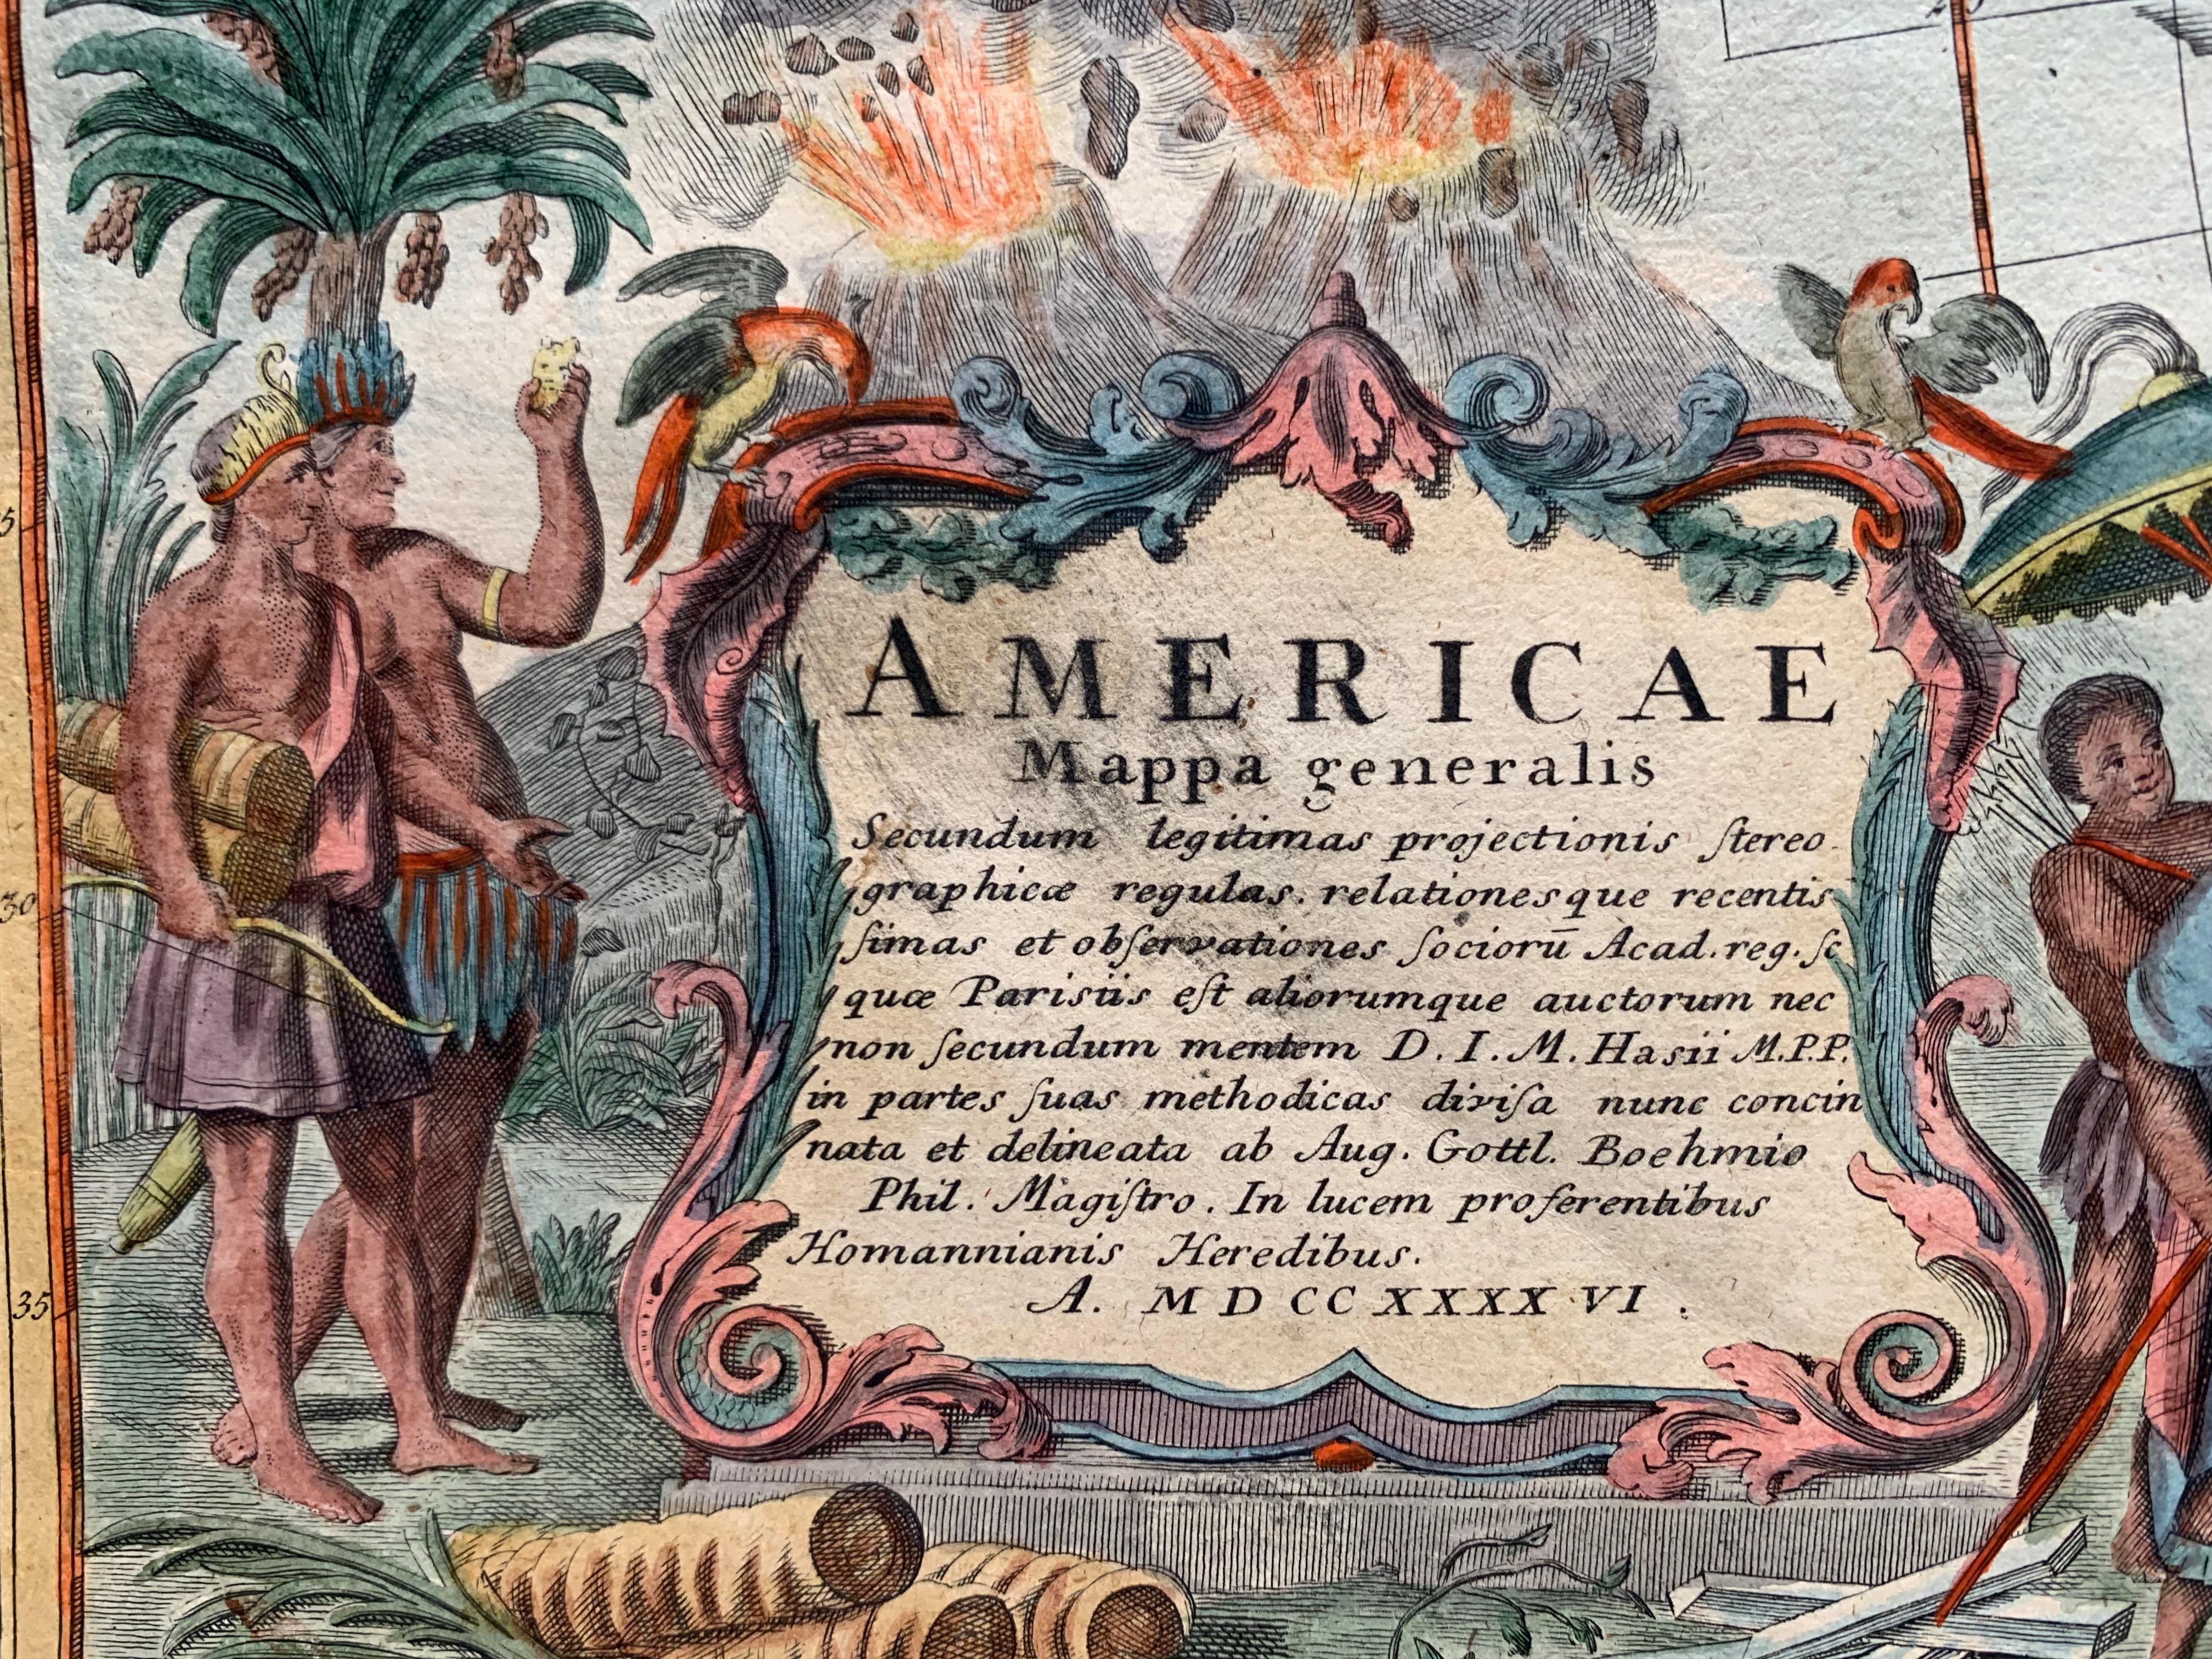 AMERICAE
Mappa generalis
Secundum legitimas projectionis ſtereo-
graphicæ regulas. relationesque recentis
ſimas et obſervationes ſociorū Acad. reg. ſc
quæ Parisiis eſt aliorumque auctorum nec
non ſecundum mentem D. I. M. Hasii M.P.P.
in partes ſuas methodicas diviſa nunc concin
nata et delineata ab Aug. Gottl. Boehmio
Phil. Magiſtro. In lucem proferentibus
Homannianis Heredibus.
A. MDCCXXXXVI.
30
35